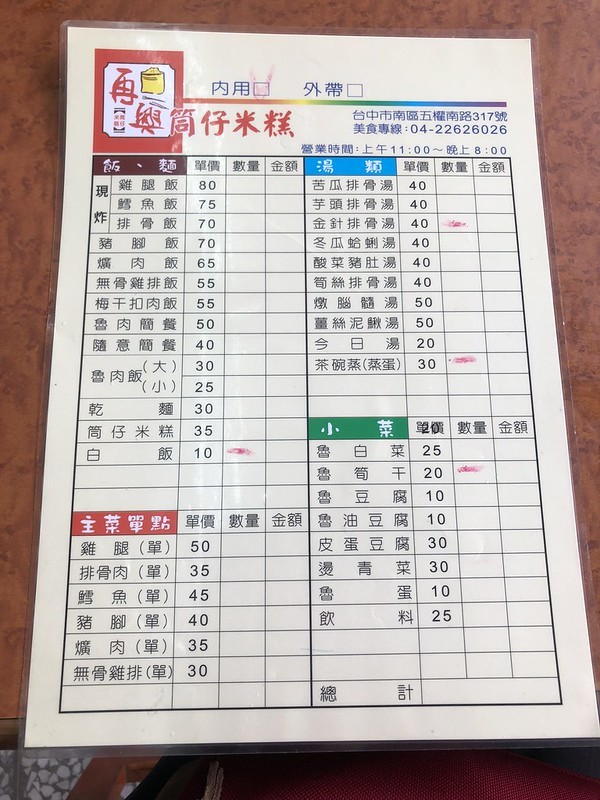 再興
筒仔米糕
內用 外帶
筒仔米糕
台中市南區五權南路317號
美食專線:04-22626026
營業時間:上午11:00～晚上8:00
飯、麵 單價 數量 金額
現炸
雞腿飯 80
鱈魚飯 75
排骨飯 70
豬腳飯 70
爌肉飯 65
無骨雞排飯 55
梅干扣肉飯 55
魯肉簡餐 50
隨意簡餐 40
魯肉飯(大) 30
(小) 25
乾麵 30
筒仔米糕 35
白飯 10
主菜單點 單價 數量 金額
雞腿(單) 50
排骨肉(單) 35
鱈魚(單) 45
豬腳(單) 40
爌肉(單) 35
無骨雞排(單) 30
湯類 單價 數量 金額
苦瓜排骨湯 40
芋頭排骨湯 40
金針排骨湯 40
冬瓜蛤蜊湯 40
酸菜豬肚湯 40
筍絲排骨湯 40
燉腦髓湯 50
薑絲泥鰍湯 50
今日湯 20
茶碗蒸(蒸蛋) 30
小菜 單價 數量 金額
魯白菜 25
魯筍干 20
魯豆腐 10
魯油豆腐 10
皮蛋豆腐 30
燙青菜 30
魯蛋 10
飲料 25
總計